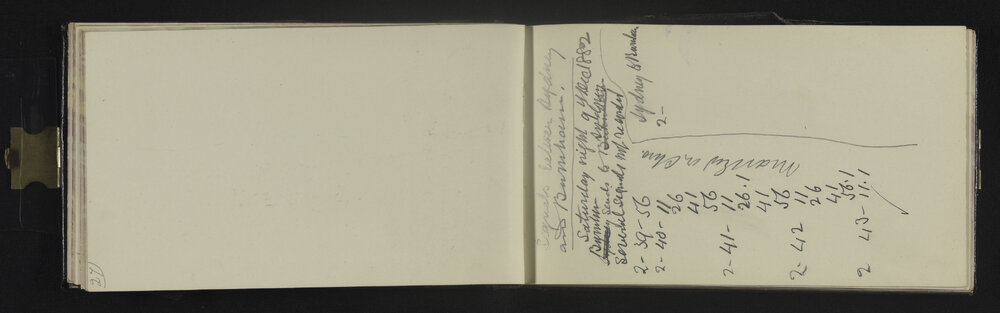 27)
Signals between Sydney
and Burnham.
Saturday night 9 Dec 1882
Burnham
Sydney sends to
Several signals not recorded
2 - 39 - 56
2 - 40 - 11
26
41
56
2 - 41 - 11
26.1
41
56
2 - 42 11
26
41
56.1
2 43 - 11.1
Marked on Chro
Sydney to Burnham
2 -